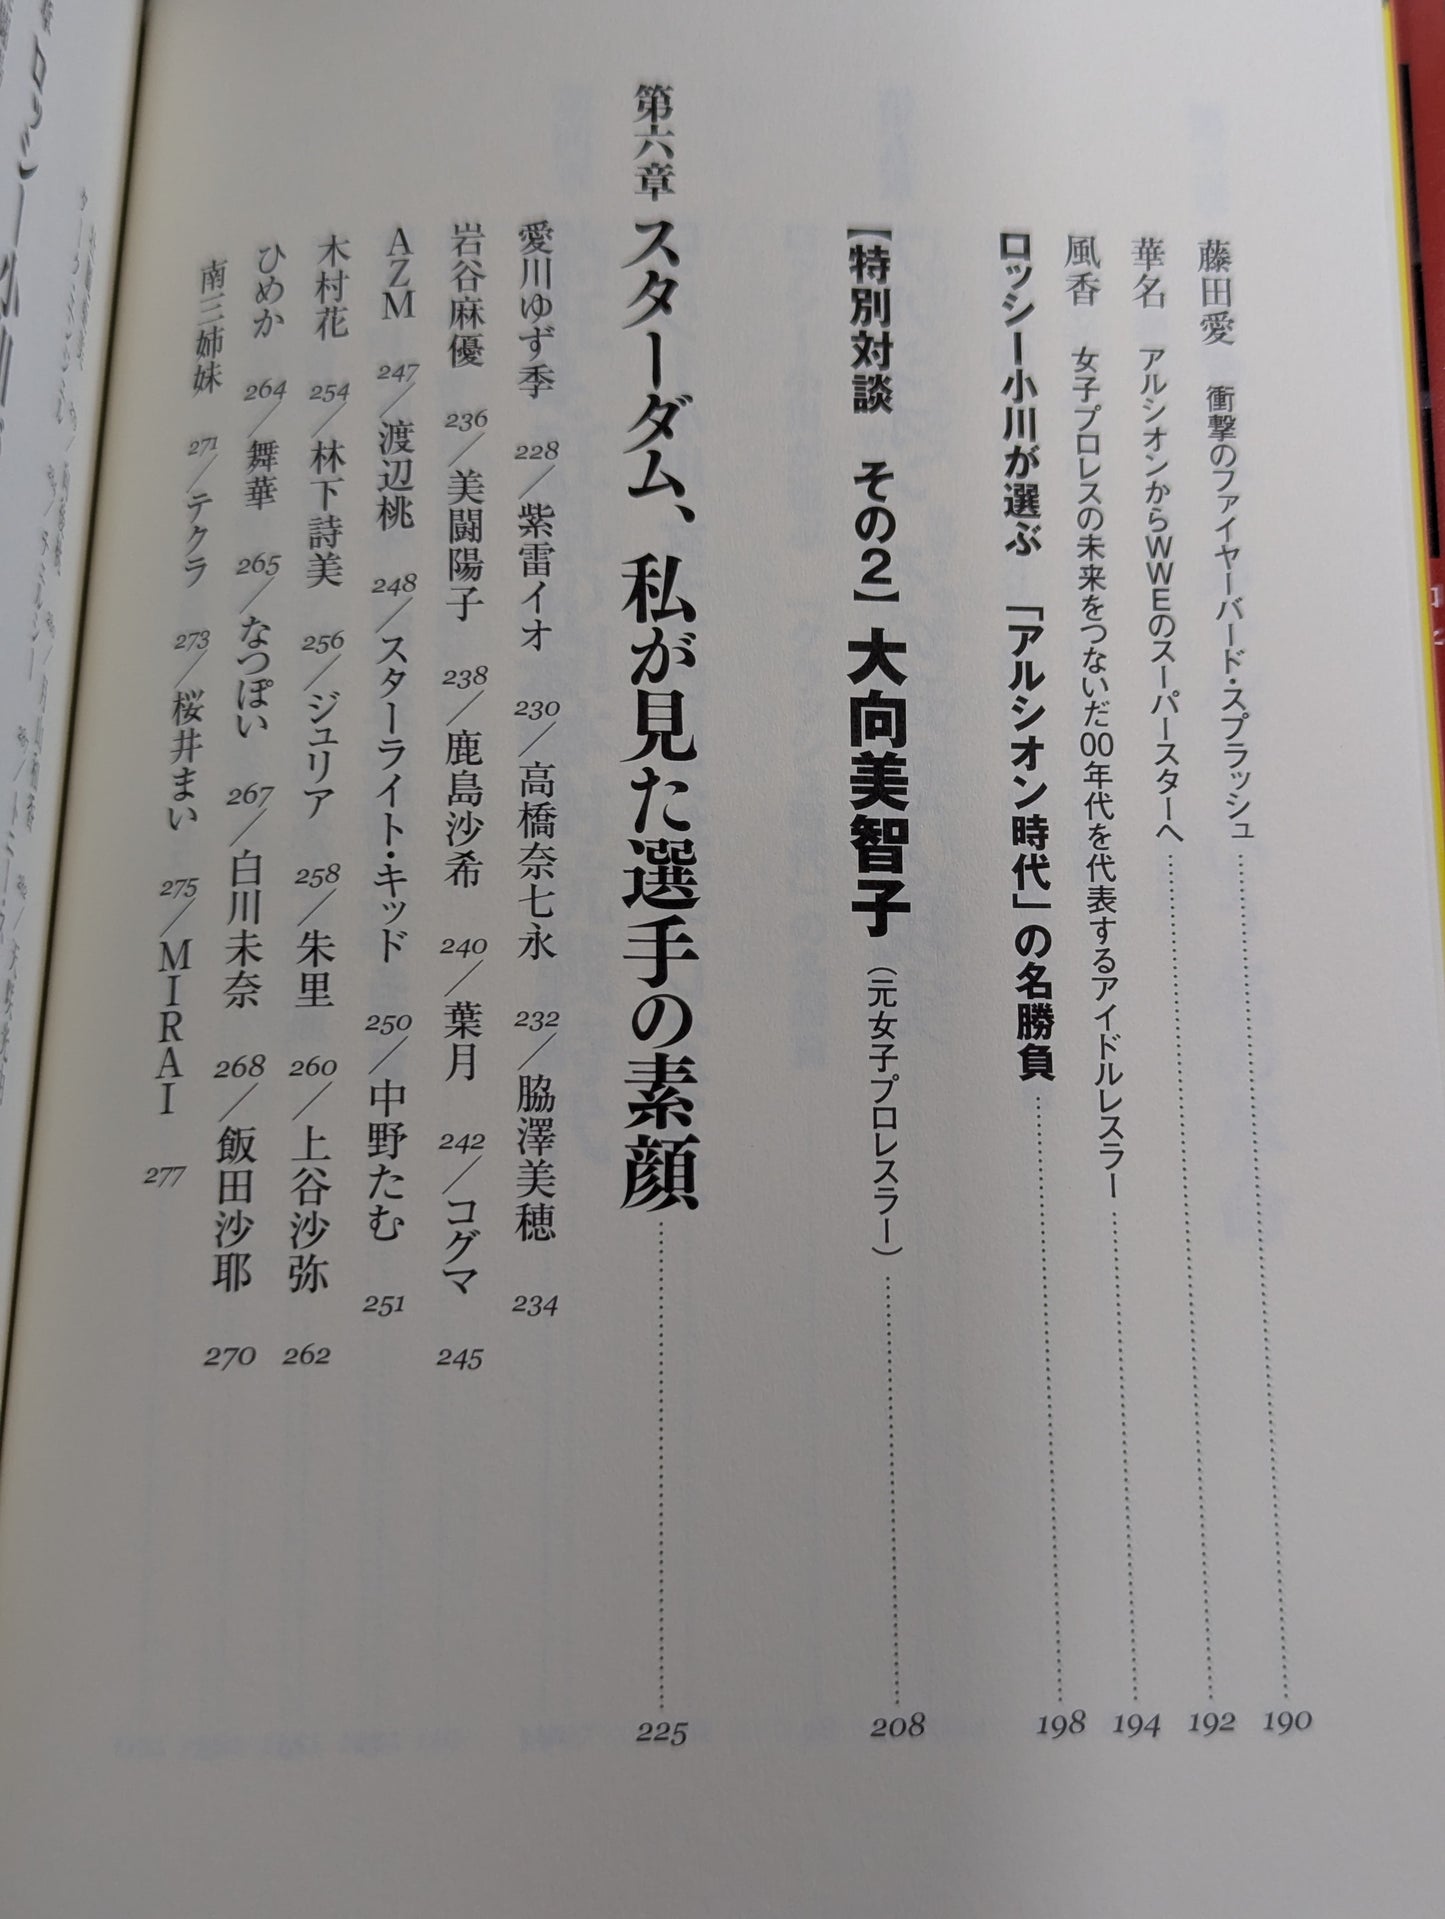 藤田愛 衝撃のファイヤーバード・スプラッシュ 190
華名 アルシオンからWWEのスーパースターへ 192
風香 女子プロレスの未来をつないだ00年代を代表するアイドルレスラー 194
ロッシー小川が選ぶ 「アルシオン時代」の名勝負 198
【特別対談 その2】大向美智子(元女子プロレスラー) 208
第六章 スターダム、私が見た選手の素顔 225
愛川ゆず季 228/紫雷イオ 230/高橋奈七永 232/脇澤美穂 234
岩谷麻優 236/美闘陽子 238/鹿島沙希 240/葉月 242/コグマ 245
AZM 247/渡辺桃 248/スターライト・キッド 250/中野たむ 251
木村花 254/林下詩美 256/ジュリア 258/朱里 260/上谷沙弥 262
ひめか 264/舞華 265/なつぽい 267/白川未奈 268/飯田沙耶 270
南三姉妹 271/テクラ 273/桜井まい 275/MIRAI 277